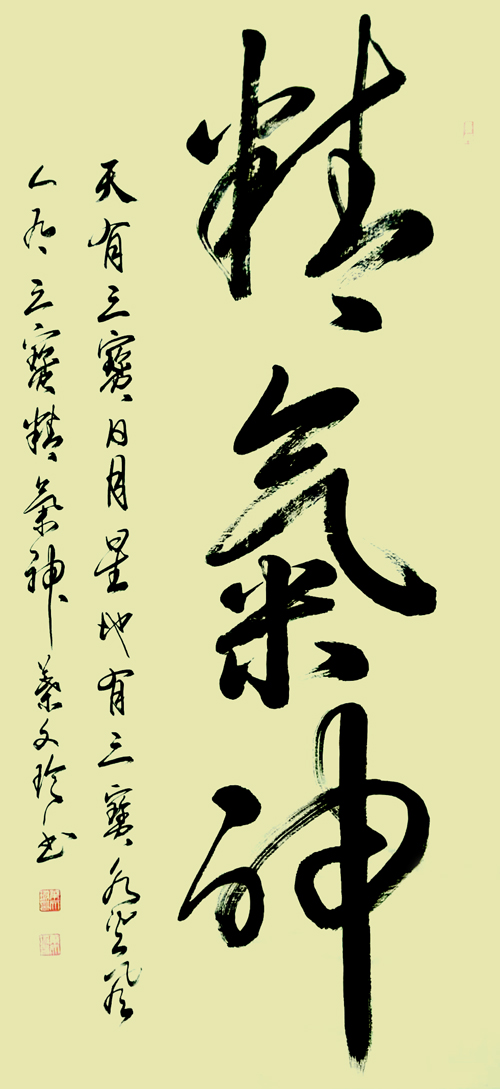 精氣神
天有三寶日月星地有三寶水火風
人有三寶精氣神 蔡文玲书